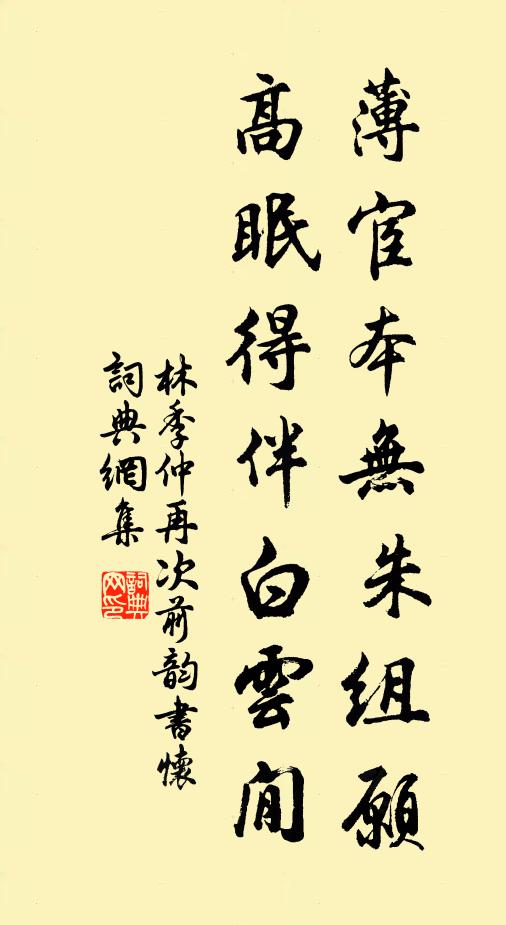 薄宦本無朱組願
高眠得伴白雲閒
林季仲再次前韵書懷
詞典網集
詞典网印